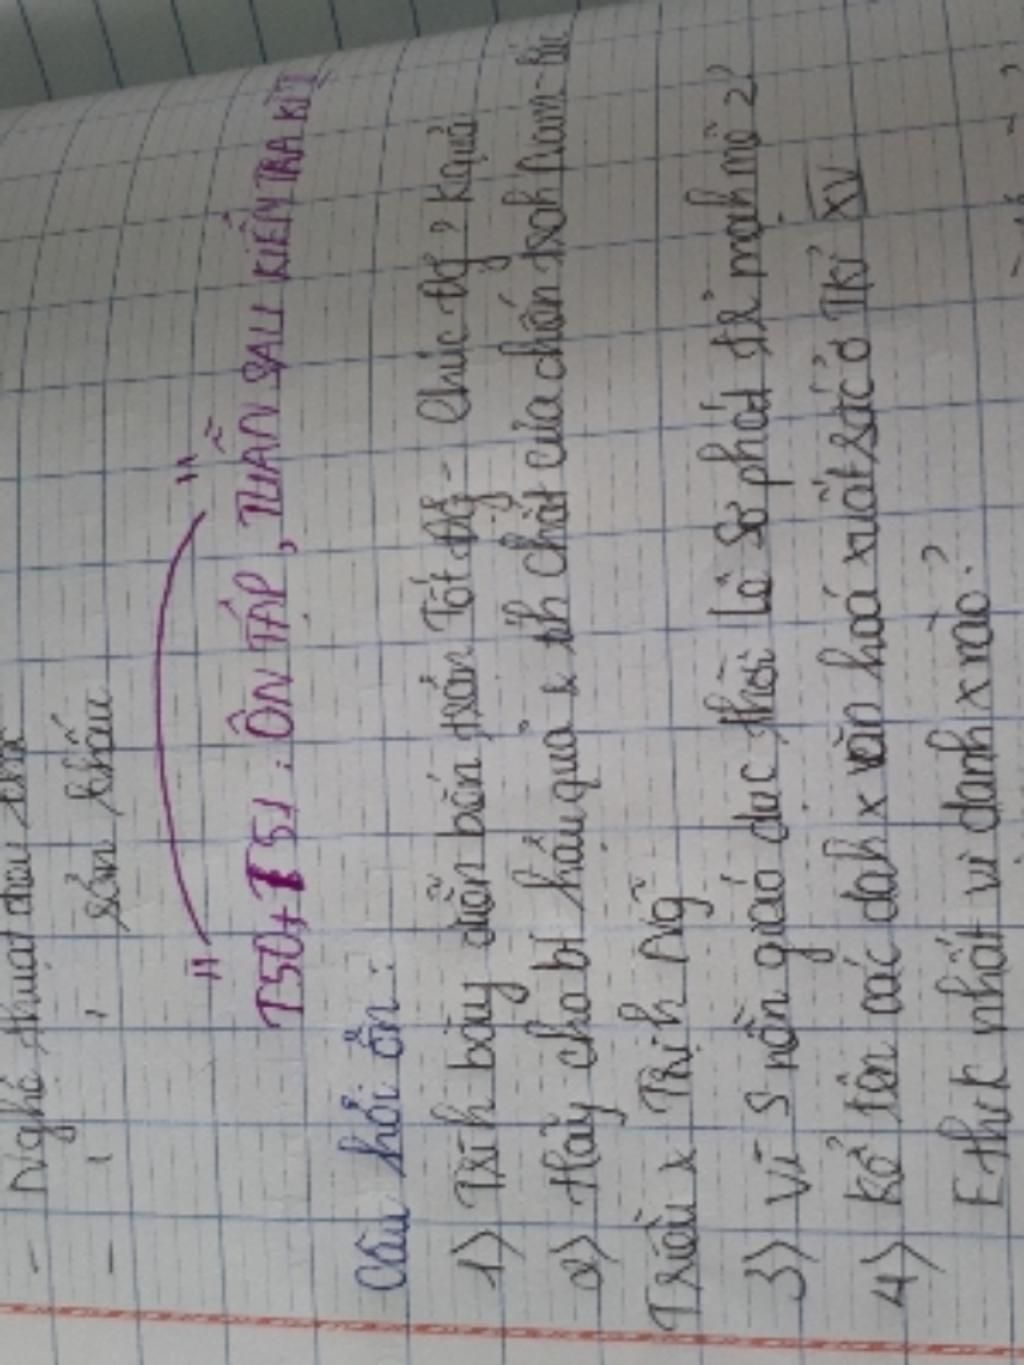 - Nghệ thuật
- sân khấu
T50+T51: ÔN TẬP, TUẦN SAU KIỂM TRA KÌ II
Câu hỏi ôn:
1) Trìh bày diễn bến trận Tốt Độg - Chúc Độg? Kquả
2) Hãy cho bt hậu quả & th chất của chiến trah Nam - Bắc
Triều & Trịh Ng~
3) Vì s nền giáo dục thời Lê Sơ phát trỉ mạh mẽ?
4) Kể tên các dah x văn hoá xuất sắc ở TKỉ XV
E thík nhất vì danh x nào?